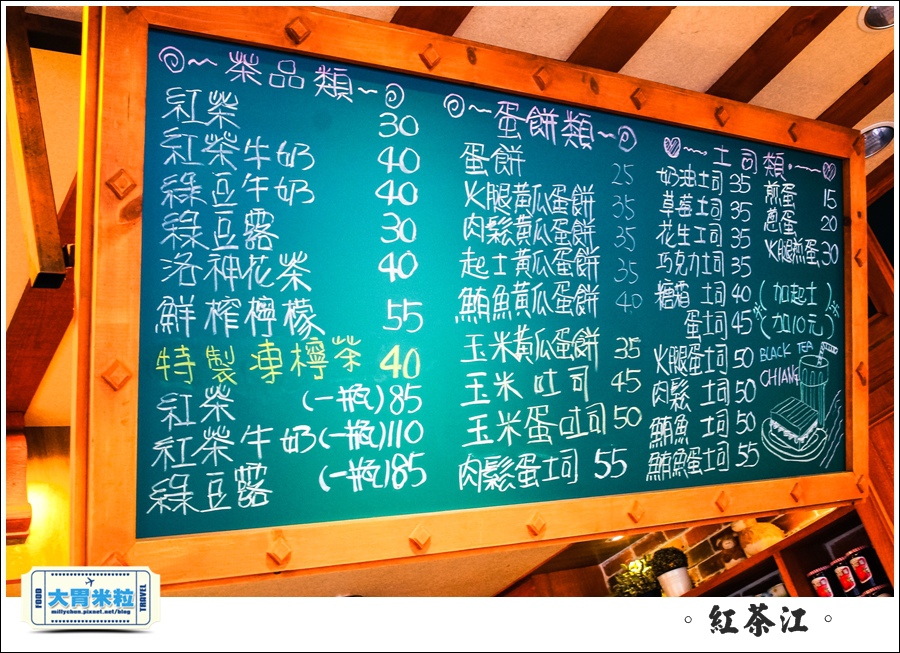 茶品類
紅茶 30
紅茶牛奶 40
綠豆牛奶 40
綠豆露 30
洛神花茶 40
鮮榨檸檬 55
特製凍檸茶 40
紅茶 (一瓶)85
紅茶牛奶(一瓶)110
綠豆露 (一瓶)85
蛋餅類
蛋餅 25
火腿黃瓜蛋餅 35
肉鬆黃瓜蛋餅 35
起士黃瓜蛋餅 35
鮪魚黃瓜蛋餅 40
玉米黃瓜蛋餅 35
玉米吐司 45
玉米蛋吐司 50
肉鬆蛋土司 55
土司類
奶油土司 35
草莓土司 35
花生土司 35
巧克力土司 35
土司 40
蛋土司 45
火腿蛋土司 50
肉鬆 土司 50
鮪魚 土司 50
鮪魚蛋土司 55
煎蛋 15
蔥蛋 20
火腿煎蛋 30
(加起士)
(加10元)
BLACK TEA
CHIANG
FOOD
大胃米粒
millychun.pixnet.net/blog
TRAVEL
。紅茶江。